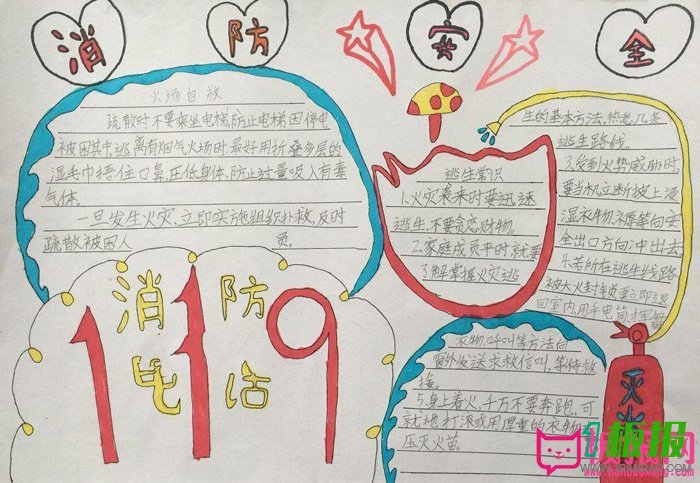 消防安全
火场自救
疏散时不要乘坐电梯,防止电梯因停电
被困其中,逃离有烟气火场时最好用折叠多层的
湿毛巾捂住口鼻,压低身体,防止过量吸入有毒
气体.
一旦发生火灾,立即实施组织扑救,及时
疏散被困人员.
消防
电话
119
逃生常识
1.火灾袭来时要迅速
逃生,不要贪恋财物.
2.家庭成员平时就要
了解掌握火灾逃
生的基本方法,熟悉几条
逃生路线.
3.受到火势威胁时,
要当机立断披上浸
湿衣物、褥等向安
全出口方向冲出去.
4.若所在逃生线路
被大火封锁要立即退
回室内,用手电筒挥舞
衣物,呼叫等方法向
窗外发送求救信叫,等待救
援.
5.身上着火,千万不要奔跑,可
就地打滚或用厚重的衣物
压灭火苗.
灭火
板报网
www.banbaowang.com